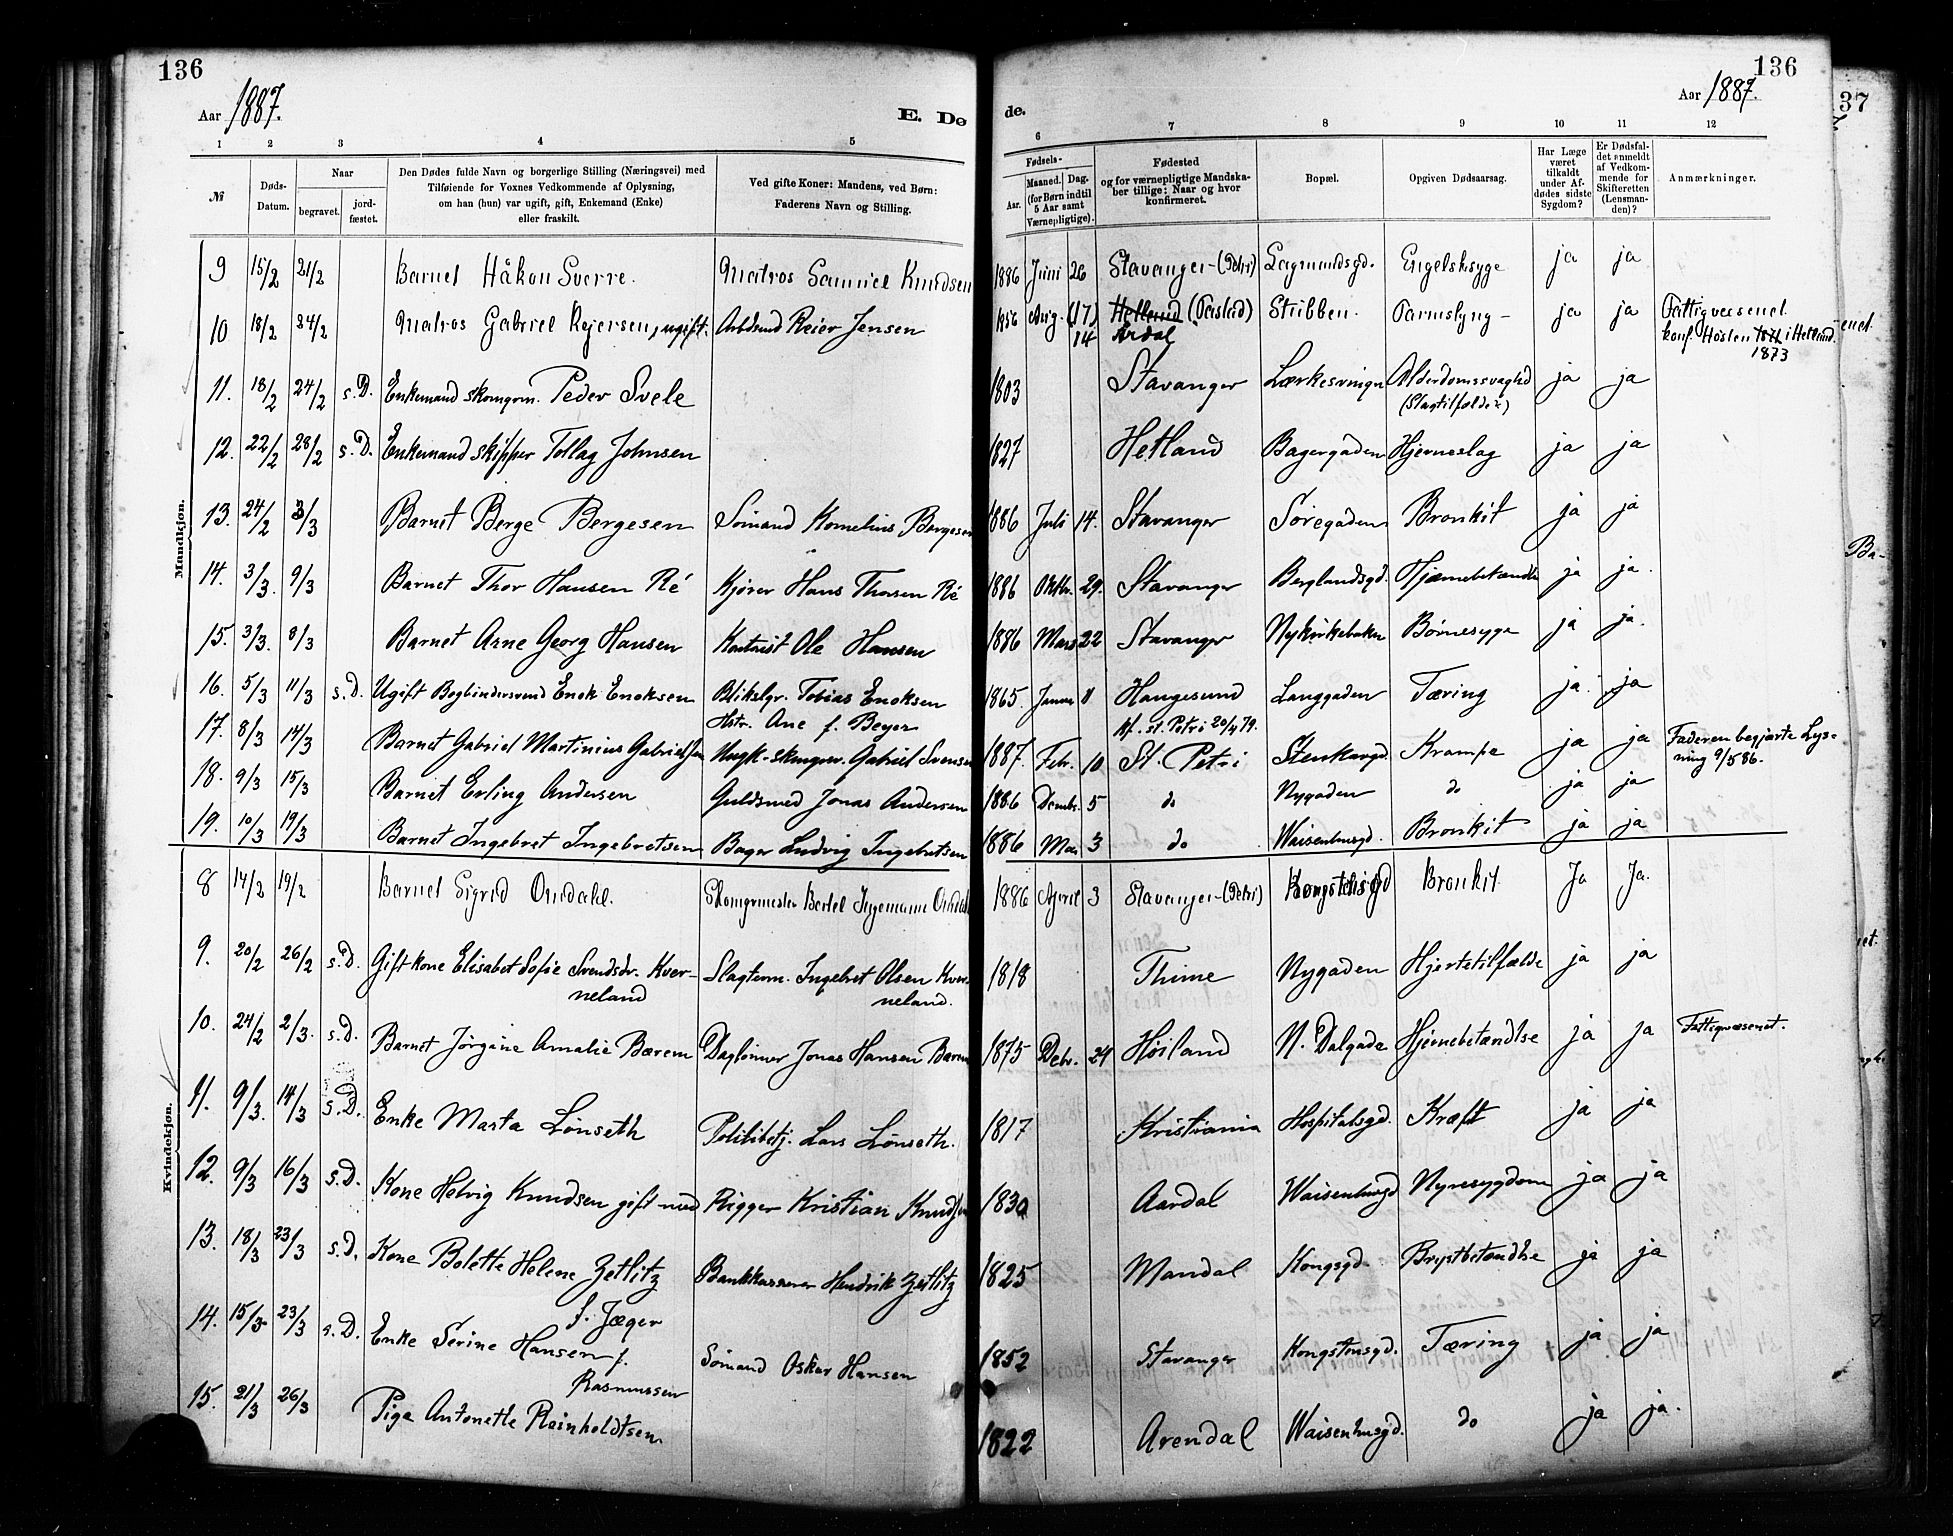 136
136
Aar 1887.
E. Døde.
Aar 1887.
37
1 2 3 4 5 6 7 8 9 10 11 12
№
Døds-Datum.
Naar
begravet.
jordfæstet.
Den Dødes fulde Navn og borgerlige Stilling (Næringsvei) med
Tilføiende for Voxnes Vedkommende af Oplysning,
om han (hun) var ugift, gift, Enkemand (Enke)
eller fraskilt.
Ved gifte Koner: Mandens, ved Børn:
Faderens Navn og Stilling.
Fødsels-
Aar.
Maaned. Dag.
(for Børn indtil
5 Aar samt
Værnepligtige).
Fødested
og for værnepligtige Mandska-
ber tillige: Naar og hvor
konfirmeret.
Bopæl.
Opgiven Dødsaarsag.
Har Læge
været
tilkaldt
under Af-
dødes sidste
Sygdom?
Er Dødsfal-
det anmeldt
af Vedkom-
mende for
Skifteretten
(Lensman-
den)?
Anmærkninger.
Mandkjøn.
9 15/2 21/2 Barnet Håkon Sverre. Matros Samuel Knudsen 1886 Juni 26 Stavanger (Petri) Lagmandsgd. Engelsksyge ja ja
10 18/2 24/2 Matros Gabriel Rejersen, ugift. Arbdsmd Reier Jensen 1856 Aug. (17) 14 Hetland Årdal Stribben. Tarmslyng- ja ja Fattigvæsenet
konf. Høsten i Hetland. 1873
11. 18/2 24/2 s.D. Enkemand skomgrm. Peder Svele 1803 Stavanger Lærkesvingn Alderdomssvaghd (Slagtilfælde) ja ja
12. 22/2 28/2 s.D. Enkemand skipper Tollag Johnsen 1827 Hetland Bagergaden Hjerneslag ja ja
13. 24/2 3/3 Barnet Berge Bergesen Sømand Kornelius Bergesen 1886 Juli 14. Stavanger Søregaden Bronkit ja ja
14. 3/3. 9/3 Barnet Thor Hansen Ré Kjører Hans Thorsen Ré 1886 Oktbr. 29. Stavanger Berglandsgd. Hjernebetændls ja ja.
15. 3/3. 8/3 Barnet Arne Georg Hansen Kontorist Ole Hansen 1886 Mars 22 Stavanger Nykirkebakn Børnesyge ja ja.
16. 5/3 11/3 s.D. Ugift Bogbindersvend Enok Enoksen Blikslgr. Tobias Enoksen
Hstr. Ane f. Beyer 1865. Januar 11 Haugesund
kf. st. Petri 20/4 79. Langgaden Tæring ja. ja
17. 8/3 14/3 Barnet Gabriel Martinius Gabrielsen Ungk. skomgrsv. Gabriel Svensen 1887. Febr. 10 St. Petri Stenkargd. Krampe ja ja Faderen begjærte Lys-
ning 9/5 86.
18. 9/3 15/3 Barnet Erling Andersen Guldsmed Jonas Andersen 1886 Dcmbr. 5 do Nygaden do ja ja
19. 10/3 19/3 Barnet Ingebret Ingebretsen Bager Ludvig Ingebretsen 1886 Mai 3 do Waisenhusgd. Bronkit ja ja
Kvindekjøn.
8 14/2 19/2 Barnet Sigrid Omdahl. Skomgrmester Bertel Ingemann Omdahl 1886 April 3 Stavanger (Petri) Kongstensgd Bronkit Ja Ja.
9. 20/2 26/2 s.D. Gift kone Elisabet Sofie Svendsdr. Kver-
neland Slagterm. Ingebret Olsen Kver-
neland. 1818 Thime Nygaden Hjertetilfælde ja ja
10. 24/2 2/3. s.D. Barnet Jørgine Amalie Bærem Dagløner Jonas Hansen Bærem 1875 Debr. 24 Høiland N. Dalgade Hjernebetændlse ja ja Fattigvæsenet.
11. 9/3. 14/3 s.D. Enke Marta Lønseth Politibetj. Lars Lønseth. 1817 Kristiania Hospitalsgd. Kræft ja ja
12. 9/3 16/3 s.D. Kone Helvig Knudsen gift med Rigger Kristian Knudsen 1830 Aardal Waisenhusgd Nyresygdom ja ja
13. 18/3 23/3 s.D. Kone Bolette Helene Zetlitz
f. Jæger Bankkasserer Hendrik Zetlitz 1825 Mandal Kongsgd. Brystbetændlse ja ja
14. 15/3 23/3 s.D. Enke Serine Hansen f.
Rasmussen Sømand Oskar Hansen 1852 Stavanger Kongstensgd. Tæring ja ja
15. 21/3 26/3 Pige Antonette Reinholdtsen 1822 Arendal Waisenhusgd. do ja ja.